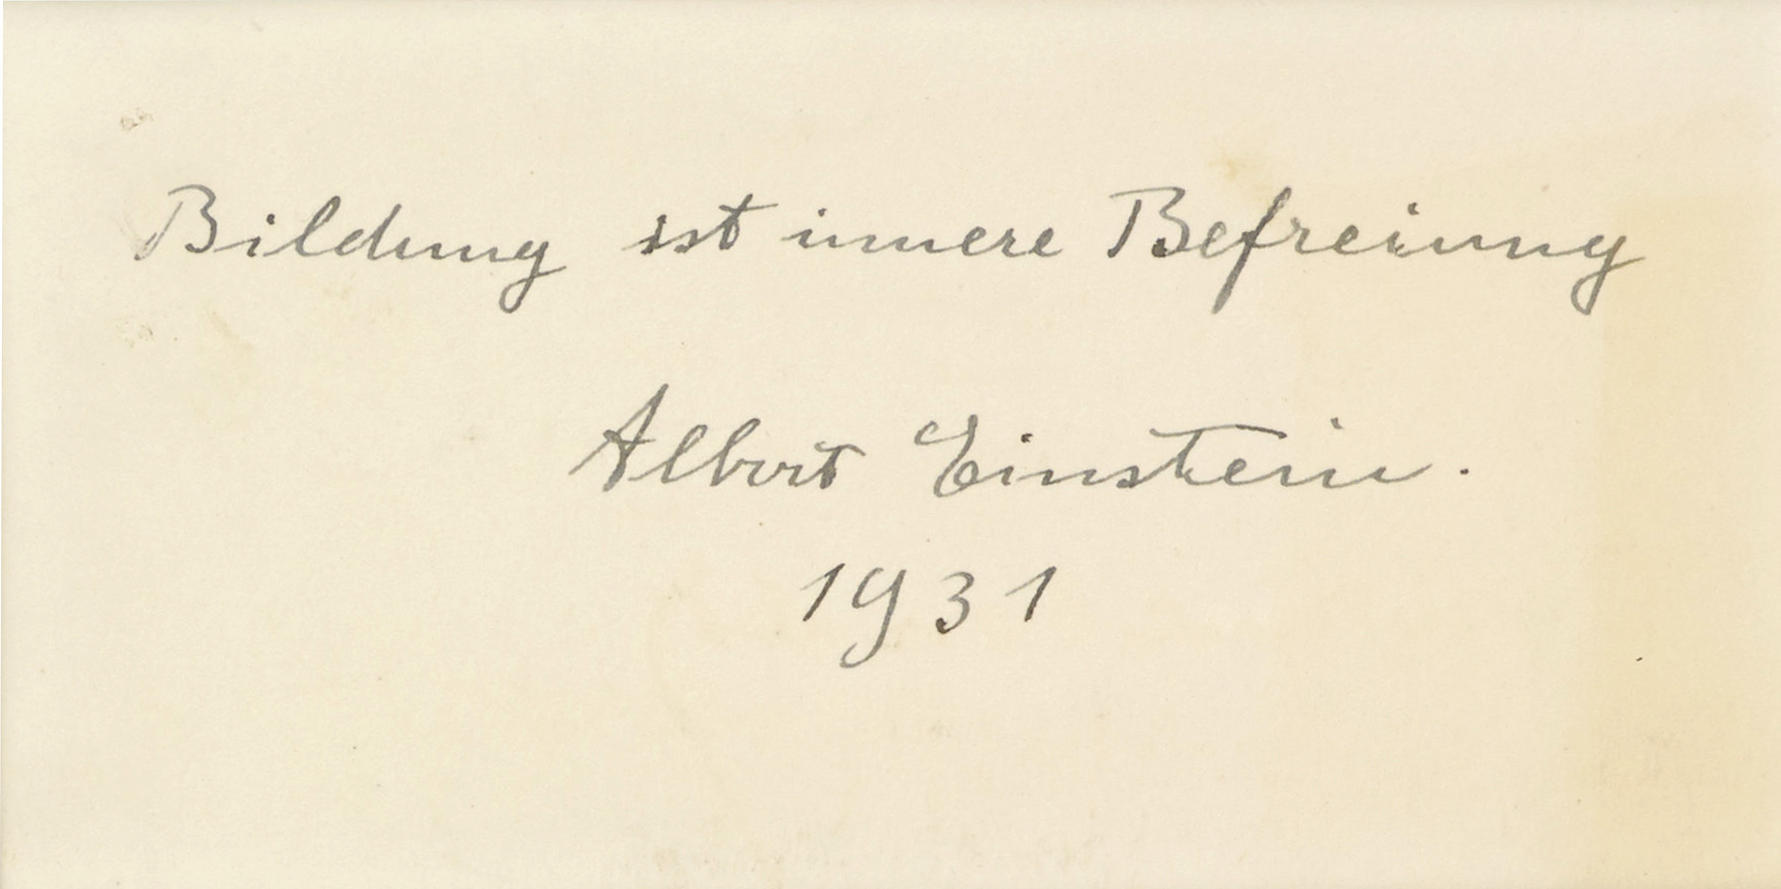 Bildung ist innere Befreiung
Albert Einstein.
1931